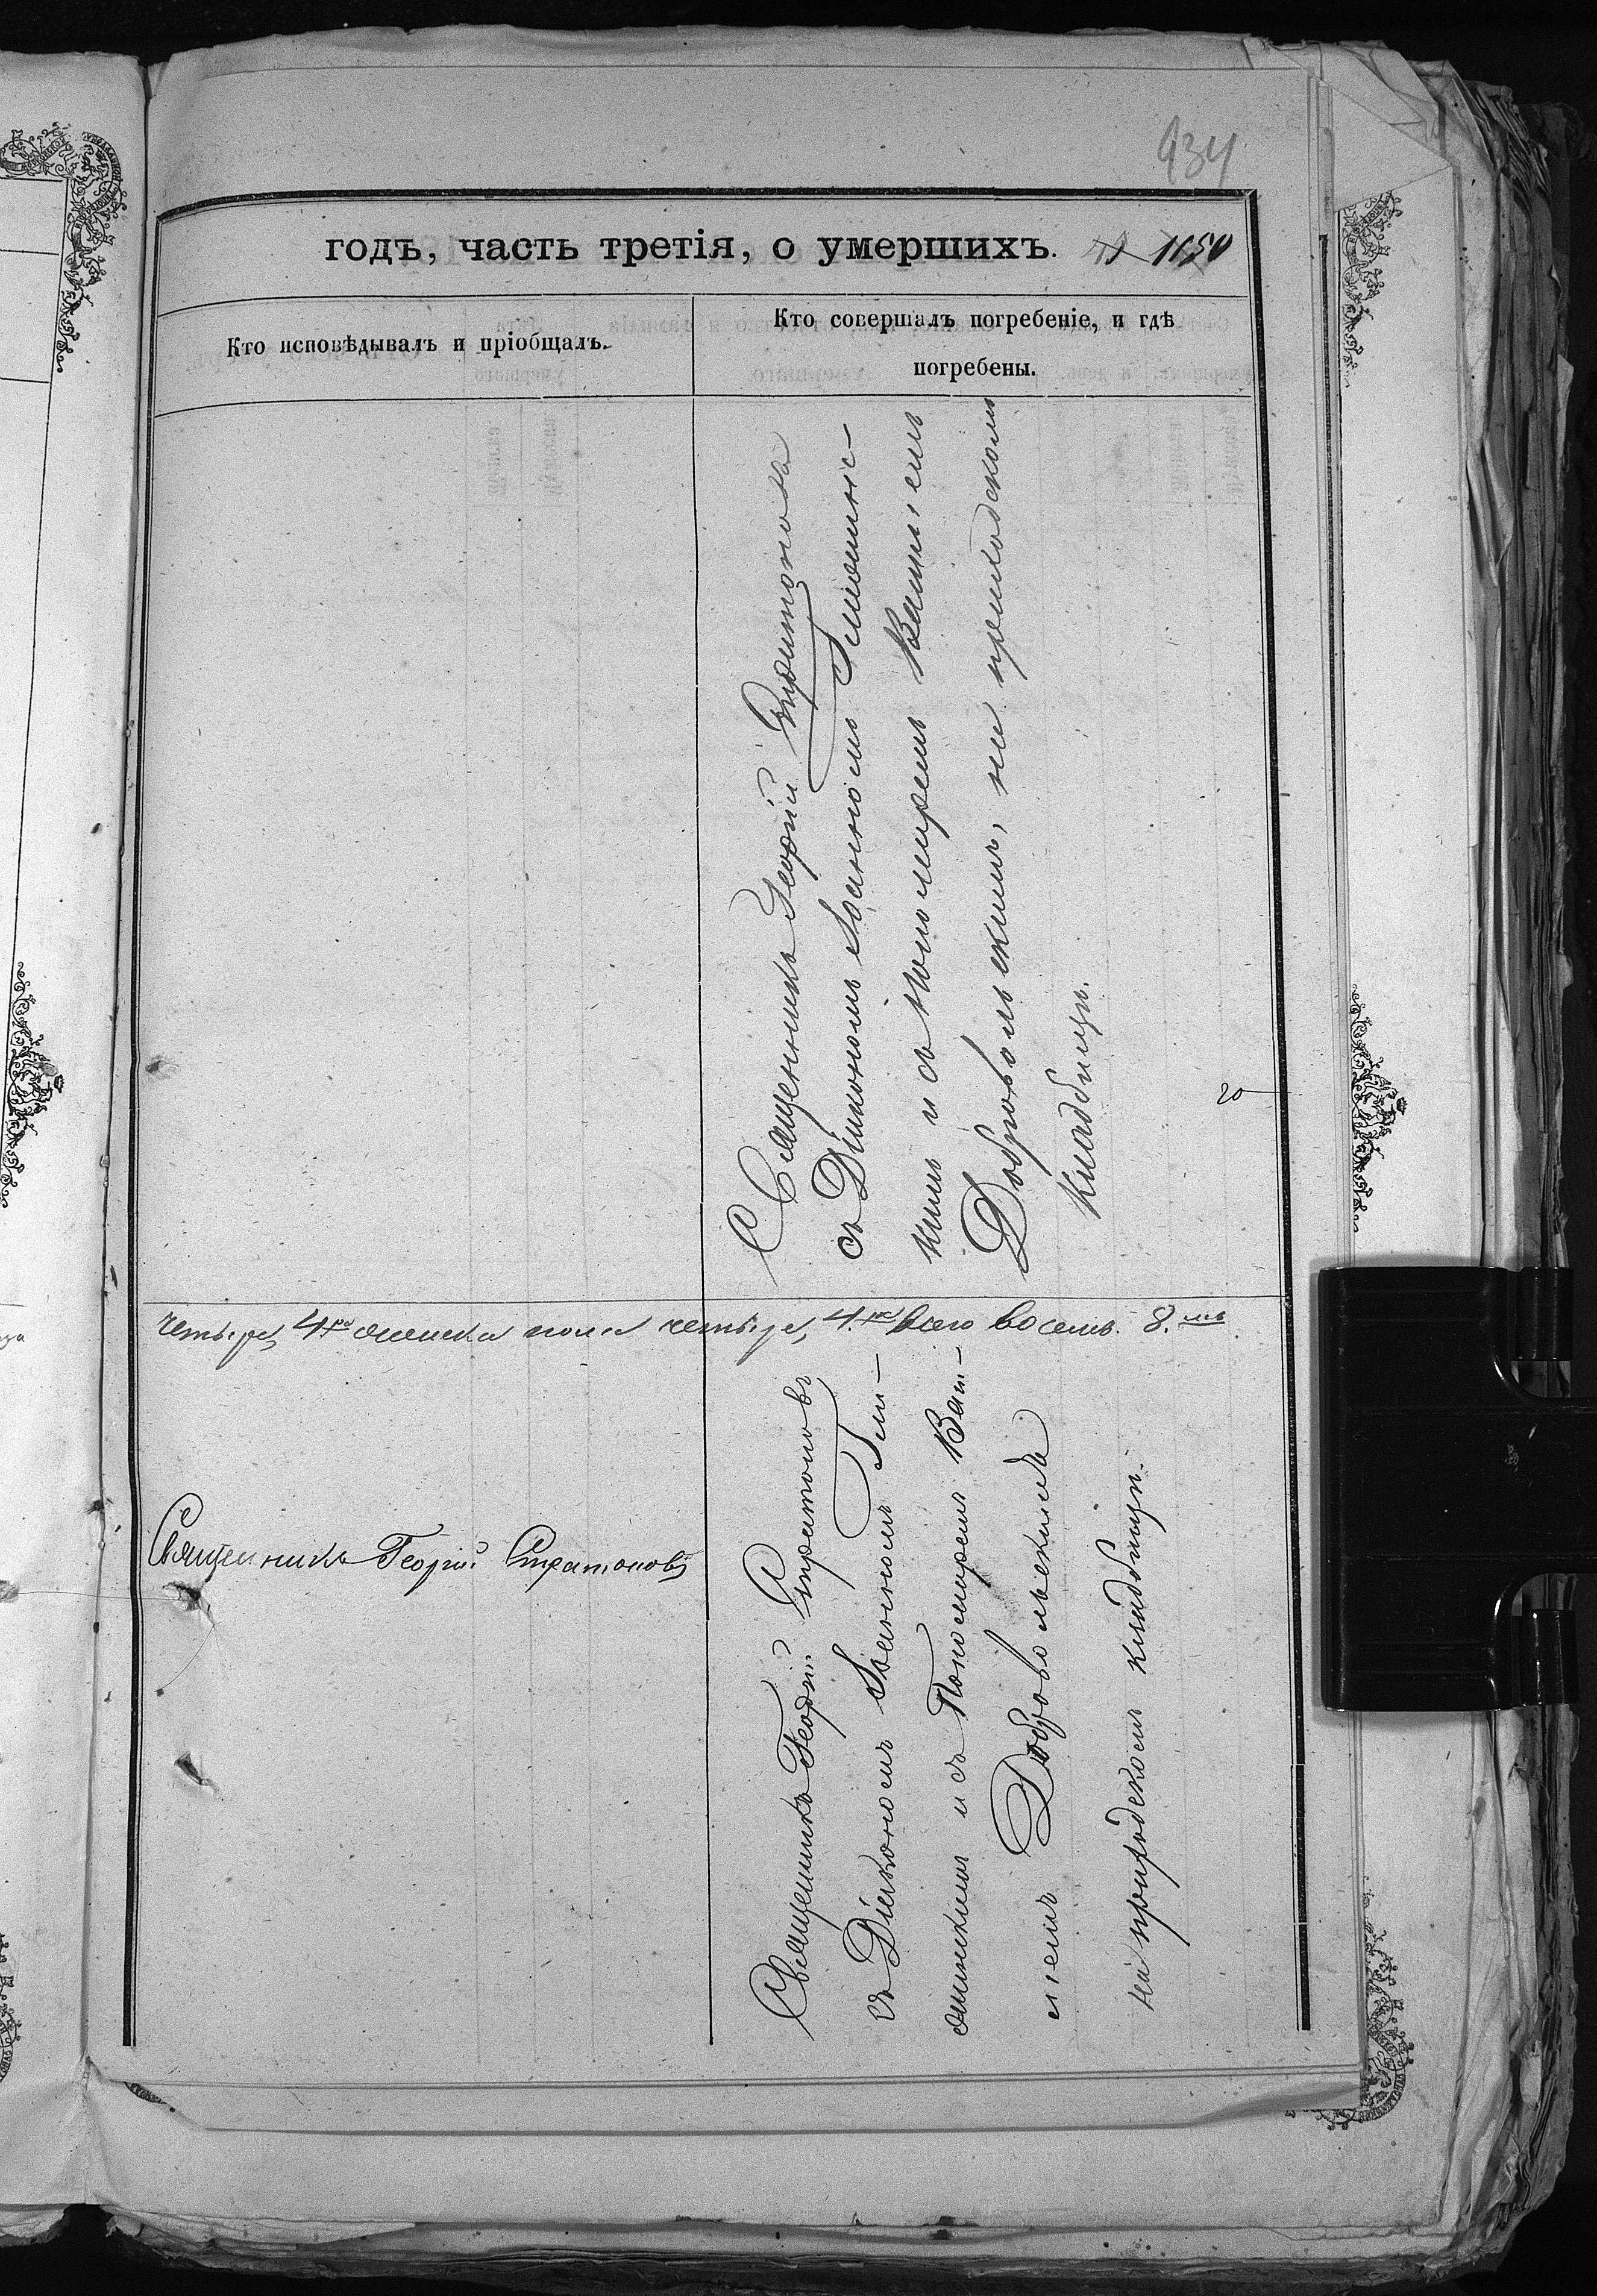 934
годъ, часть третія, о умершихъ. 1150
Кто исповѣдывалъ и пріобщалъ.
Кто совершалъ погребеніе, и гдѣ
погребены.
Священникъ Георгій Стратоновъ
съ Діакономъ Іоанномъ
кимъ и съ пономаремъ Василіемъ
Добровольскимъ, на приходскомъ
кладбищѣ.
20
четыре, 4ре женска пола четыре, 4.ре всего восемь. 8.мь
Священникъ Георгій Стратоновъ
Священникъ Георгій Стратоновъ
съ Діакономъ Іоанномъ
и съ Пономаремъ Васи-
ліемъ Добровольскимъ
на приходскомъ кладбищѣ.